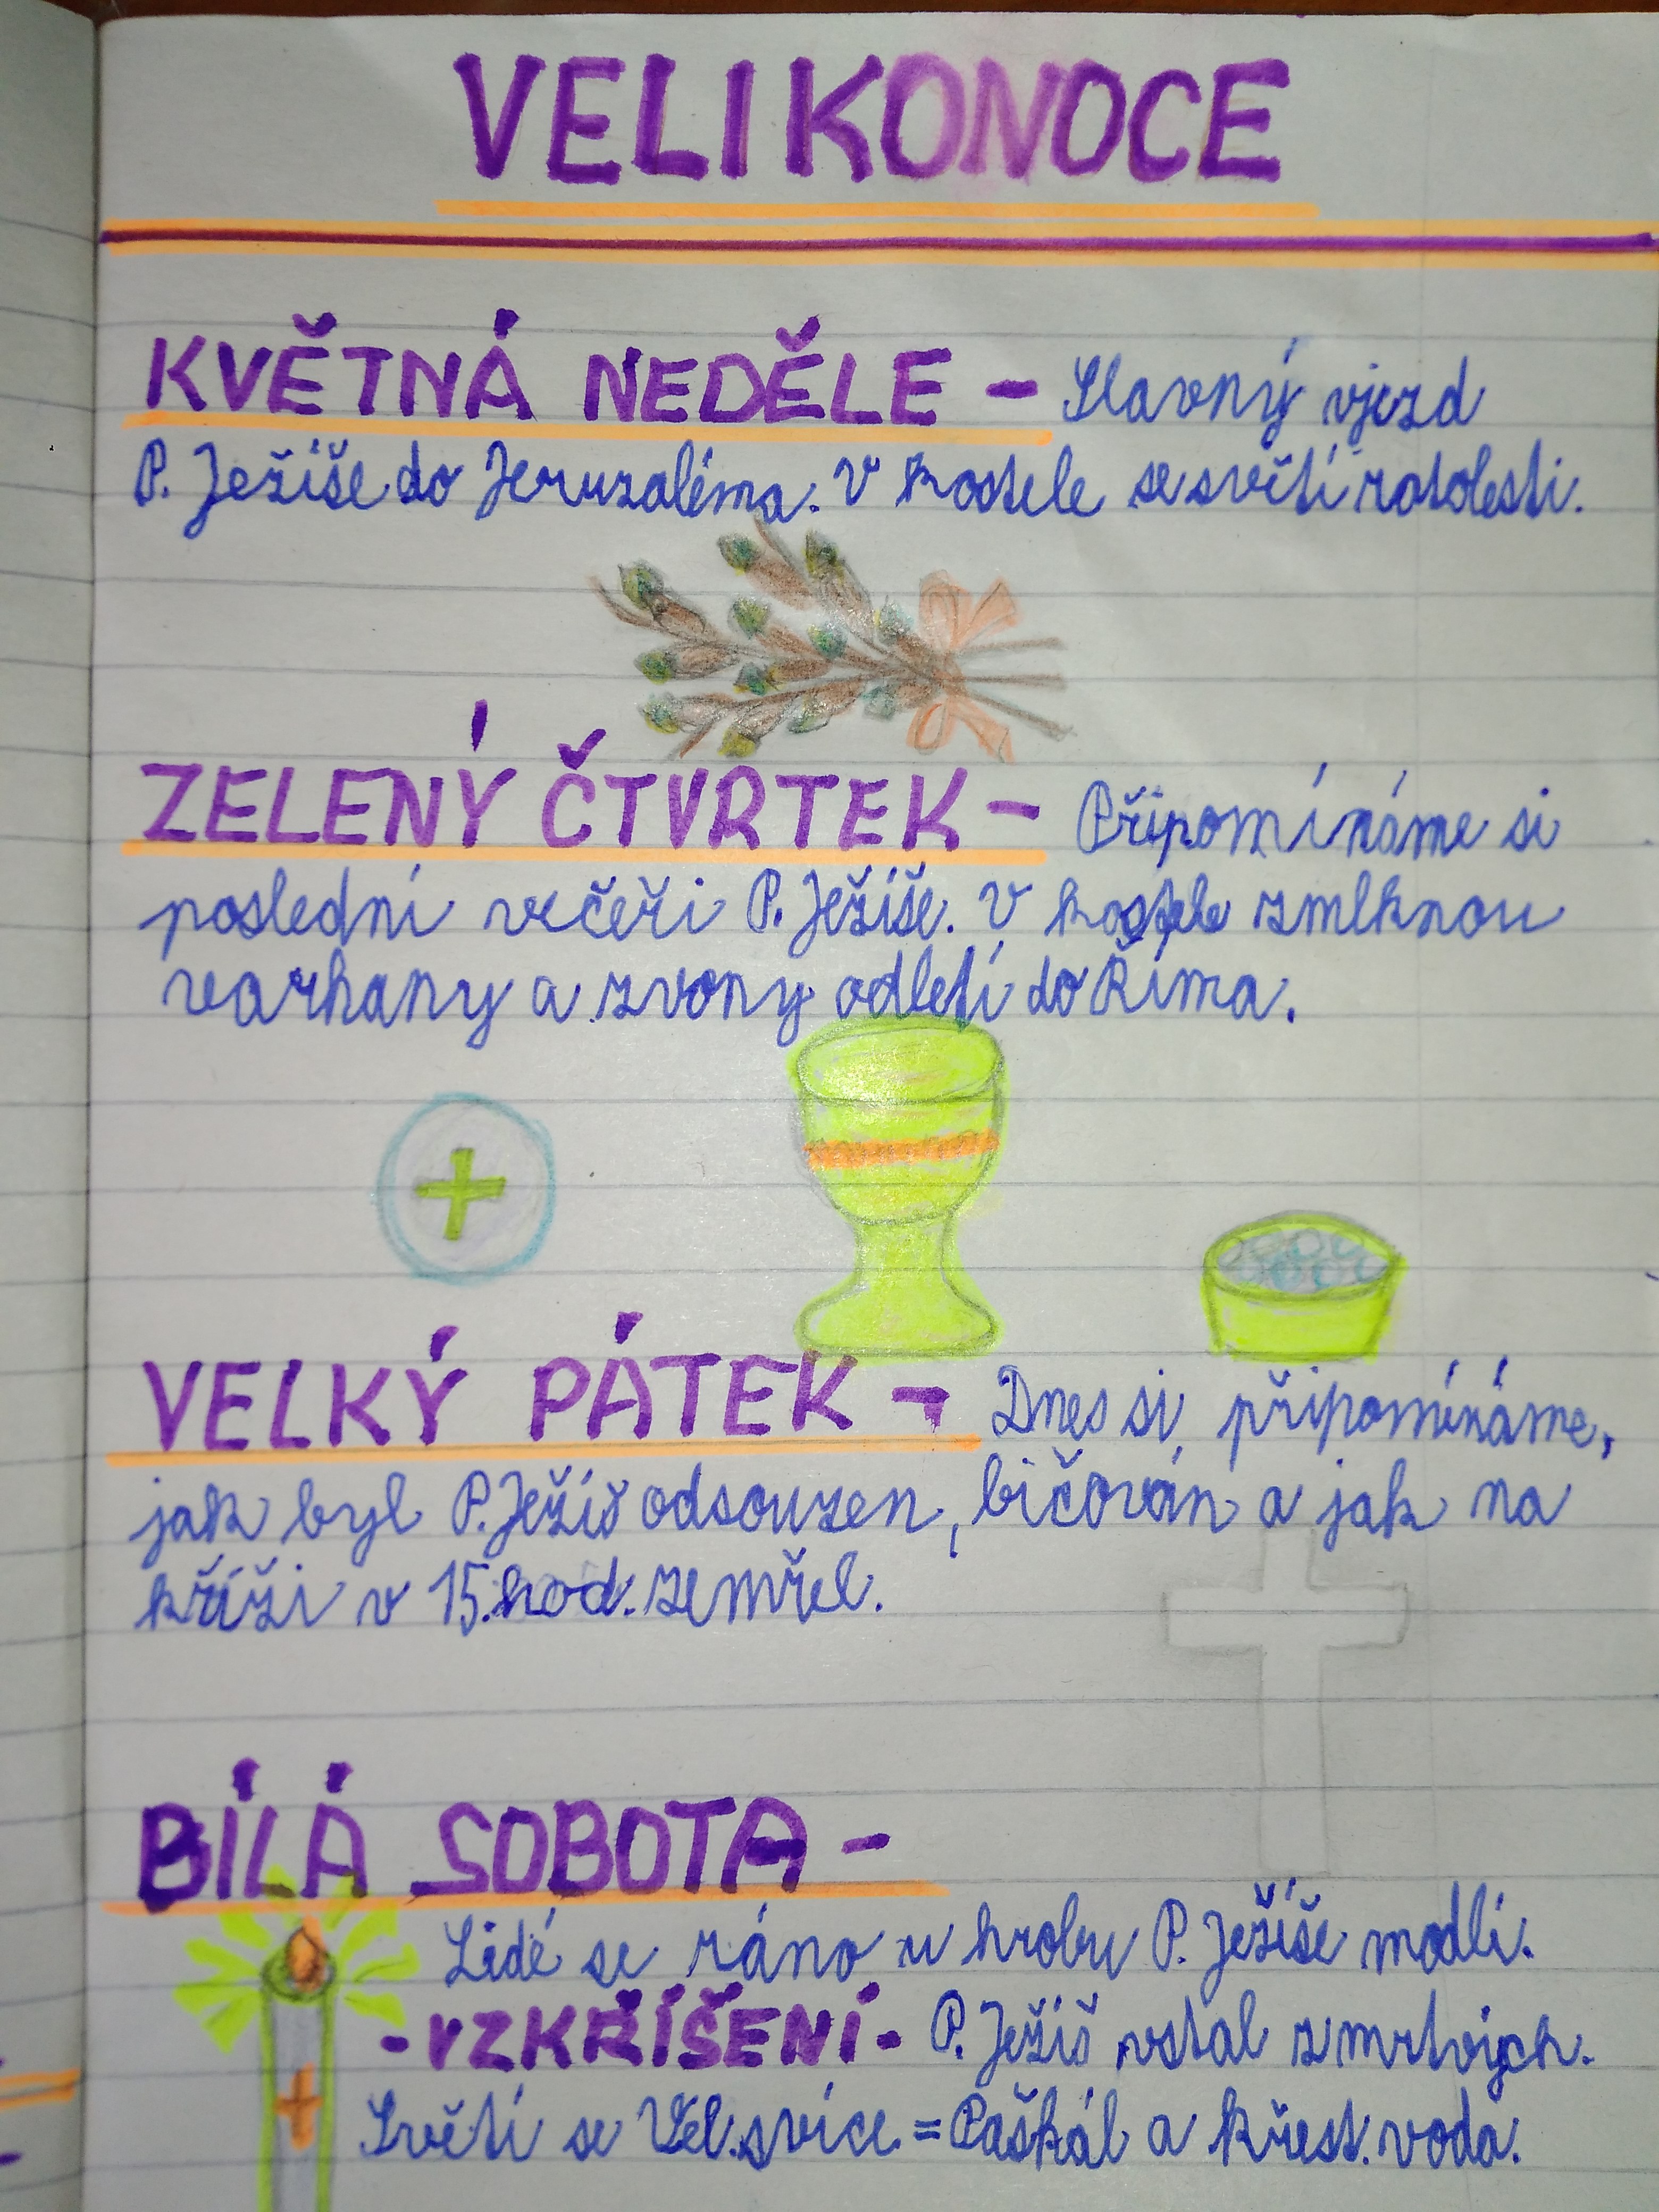 VELIKONOCE
KVĚTNÁ NEDĚLE - Slavný vjezd
P. Ježíše do Jeruzaléma. V kostele se světí ratolesti.
ZELENÝ ČTVRTEK - Připomínáme si
poslední večeři P. Ježíše. V kostele zmlknou
varhany a zvony odletí do Říma.
VELKÝ PÁTEK - Dnes si připomínáme,
jak byl P. Ježíš odsouzen, bičován a jak na
kříži v 15.hod. zemřel.
BÍLÁ SOBOTA -
Lidé se ráno u hrobu P. Ježíše modlí.
-VZKŘÍŠENÍ- P. Ježíš vstal z mrtvých.
Světí se Vel.svíce = Paškál a křest. voda.